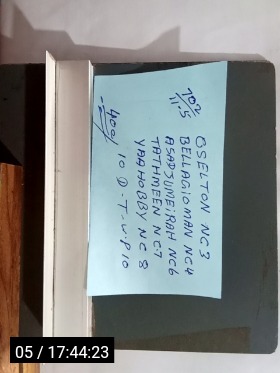 OSELTON NC3
BELLAGIOMAN NC4
ASADJUMEIRAH NC6
TATHMEEN NC7
YAAHOBBY NC8
10 D-T-UP10
702
11-5
400/
05 / 17:44:23